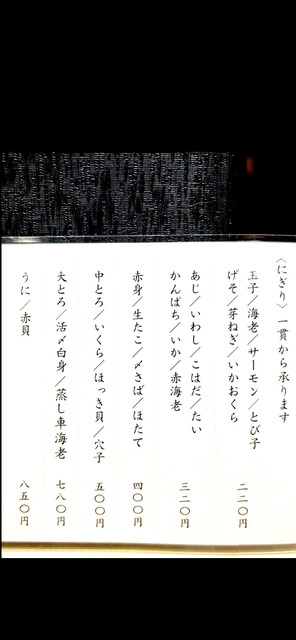 〈にぎり〉一貫から承ります
玉子／海老／サーモン／とび子
げそ／芽ねぎ／いかおくら
二二〇円
あじ／いわし／こはだ／たい
かんぱち／いか／赤海老
三二〇円
赤身／生たこ／〆さば／ほたて
四〇〇円
中とろ／いくら／ほっき貝／穴子
五〇〇円
大とろ／活〆白身／蒸し車海老
七八〇円
うに／赤貝
八五〇円